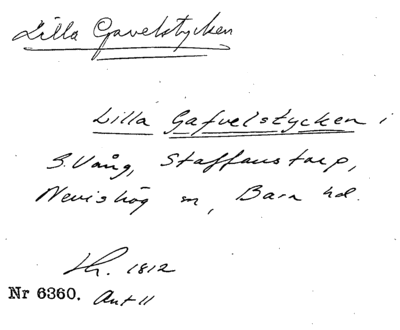 Lilla Gavelstycken
Lilla Gafvelstycken i
3. Vång, Staffanstorp,
Nevishög sn, Bara hd.
Lh. 1812
Nr 6360. Ant 11